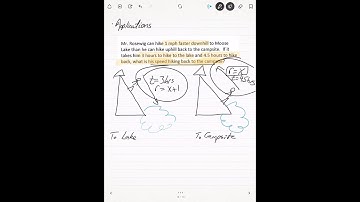 Applications
Mr. Rosewig can hike 1 mph faster downhill to Moose
Lake than he can hike uphill back to the campsite. If it
takes him 3 hours to hike to the lake and 4.5 hours to hike
back, what is his speed hiking back to the campsite?
t=3hrs
r=x+1
r=x
t=4.5hrs
To Lake
To Campsite